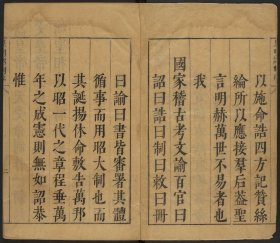 以施命誥四方記貴絲
綸所以應接羣后蓋聖
言明赫萬世不易者也
我
國家稽古考文諭百官曰
詔曰誥曰制曰敕曰冊
曰諭曰書皆審署其體
循事而用昭大制也而
其誕揚休命敷告萬
以昭一代之章程垂萬
年之成憲則無如詔恭
惟